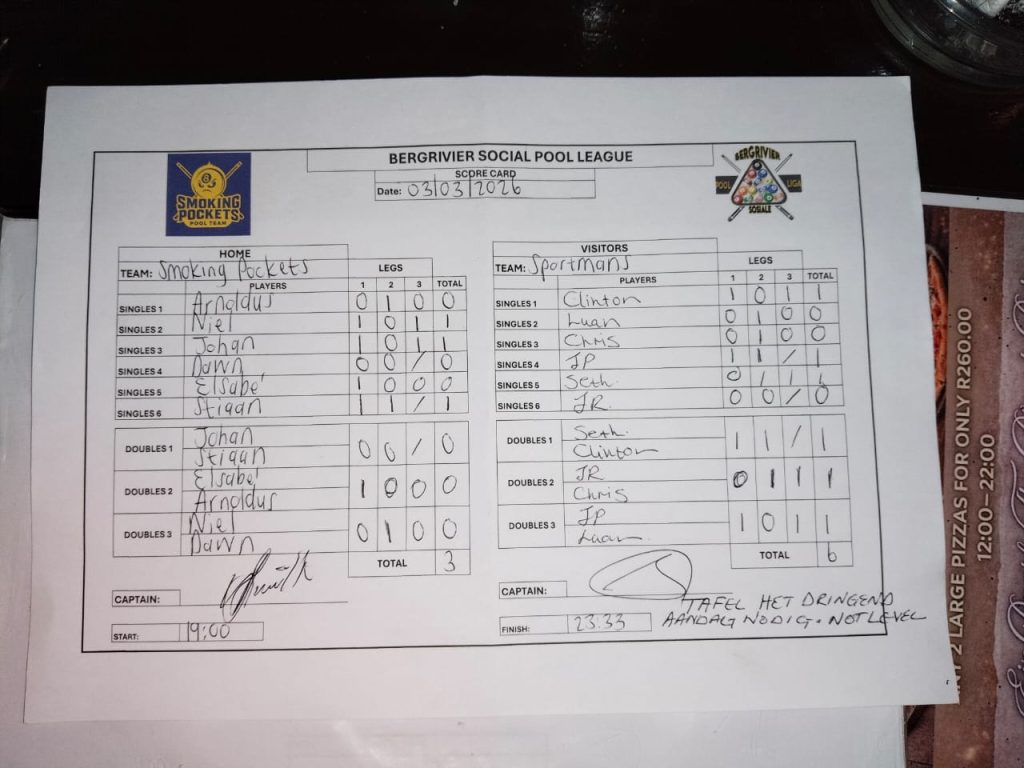 BERGRIVIER SOCIAL POOL LEAGUE
SCORE CARD
Date: 03/03/2026
SMOKING
POCKETS
POOL TEAM
BERGRIVIER
POOL LIGA
SOSIALE
HOME
TEAM: Smoking Pockets LEGS
PLAYERS 1 2 3 TOTAL
SINGLES 1 Arnoldus 0 1 0 0
SINGLES 2 Niel 1 0 1 1
SINGLES 3 Johan 1 0 1 1
SINGLES 4 Dawn 0 0 / 0
SINGLES 5 Elsabé 1 0 0 0
SINGLES 6 Stigan 1 1 / 1
DOUBLES 1 Johan 0 0 / 0
Stigan
DOUBLES 2 Elsabé 1 0 0 0
Arnoldus
DOUBLES 3 Niel 0 1 0 0
Dawn
TOTAL 3
CAPTAIN:
START: 19:00
VISITORS
TEAM: Sportmans LEGS
PLAYERS 1 2 3 TOTAL
SINGLES 1 Clinton 1 0 1 1
SINGLES 2 Luan 0 1 0 0
SINGLES 3 Chris 0 1 0 0
SINGLES 4 JP 1 1 / 1
SINGLES 5 Seth. 0 1 1 1
SINGLES 6 JR. 0 0 / 0
DOUBLES 1 Seth. 1 1 / 1
Clinton
DOUBLES 2 JR 0 1 1 1
Chris
DOUBLES 3 JP 1 0 1 1
Luan
TOTAL 6
CAPTAIN:
FINISH: 23:33
TAFEL HET DRINGEND
AANDAG NODIG. NOT LEVEL
2 LARGE PIZZAS FOR ONLY R260.00
12:00 – 22:00